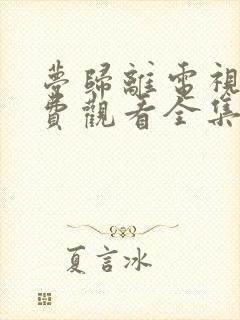 夢歸離電視
費觀看全集
夏言冰